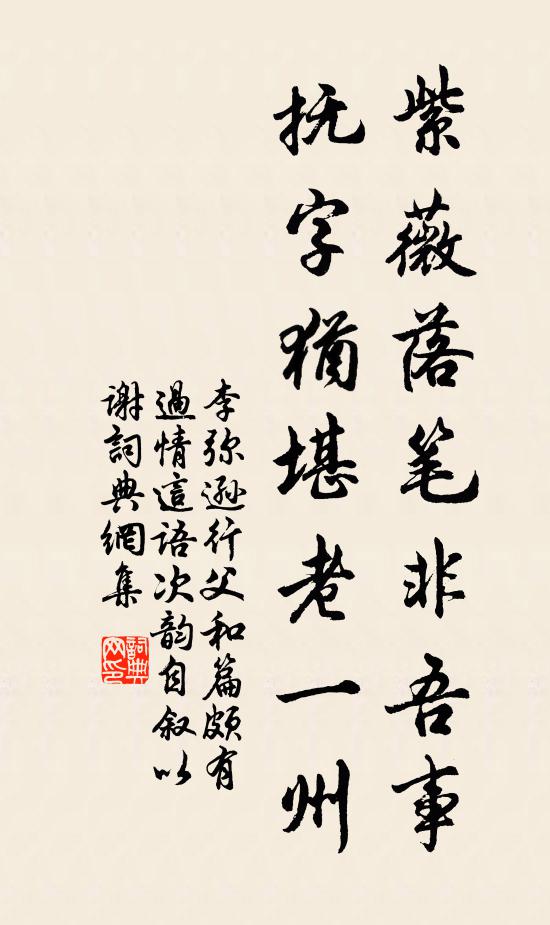 紫薇落笔非吾事
抚字犹堪老一州
李弥逊行父和篇頗有
過情這語次韵自叙以
谢詞典網集
詞典网印